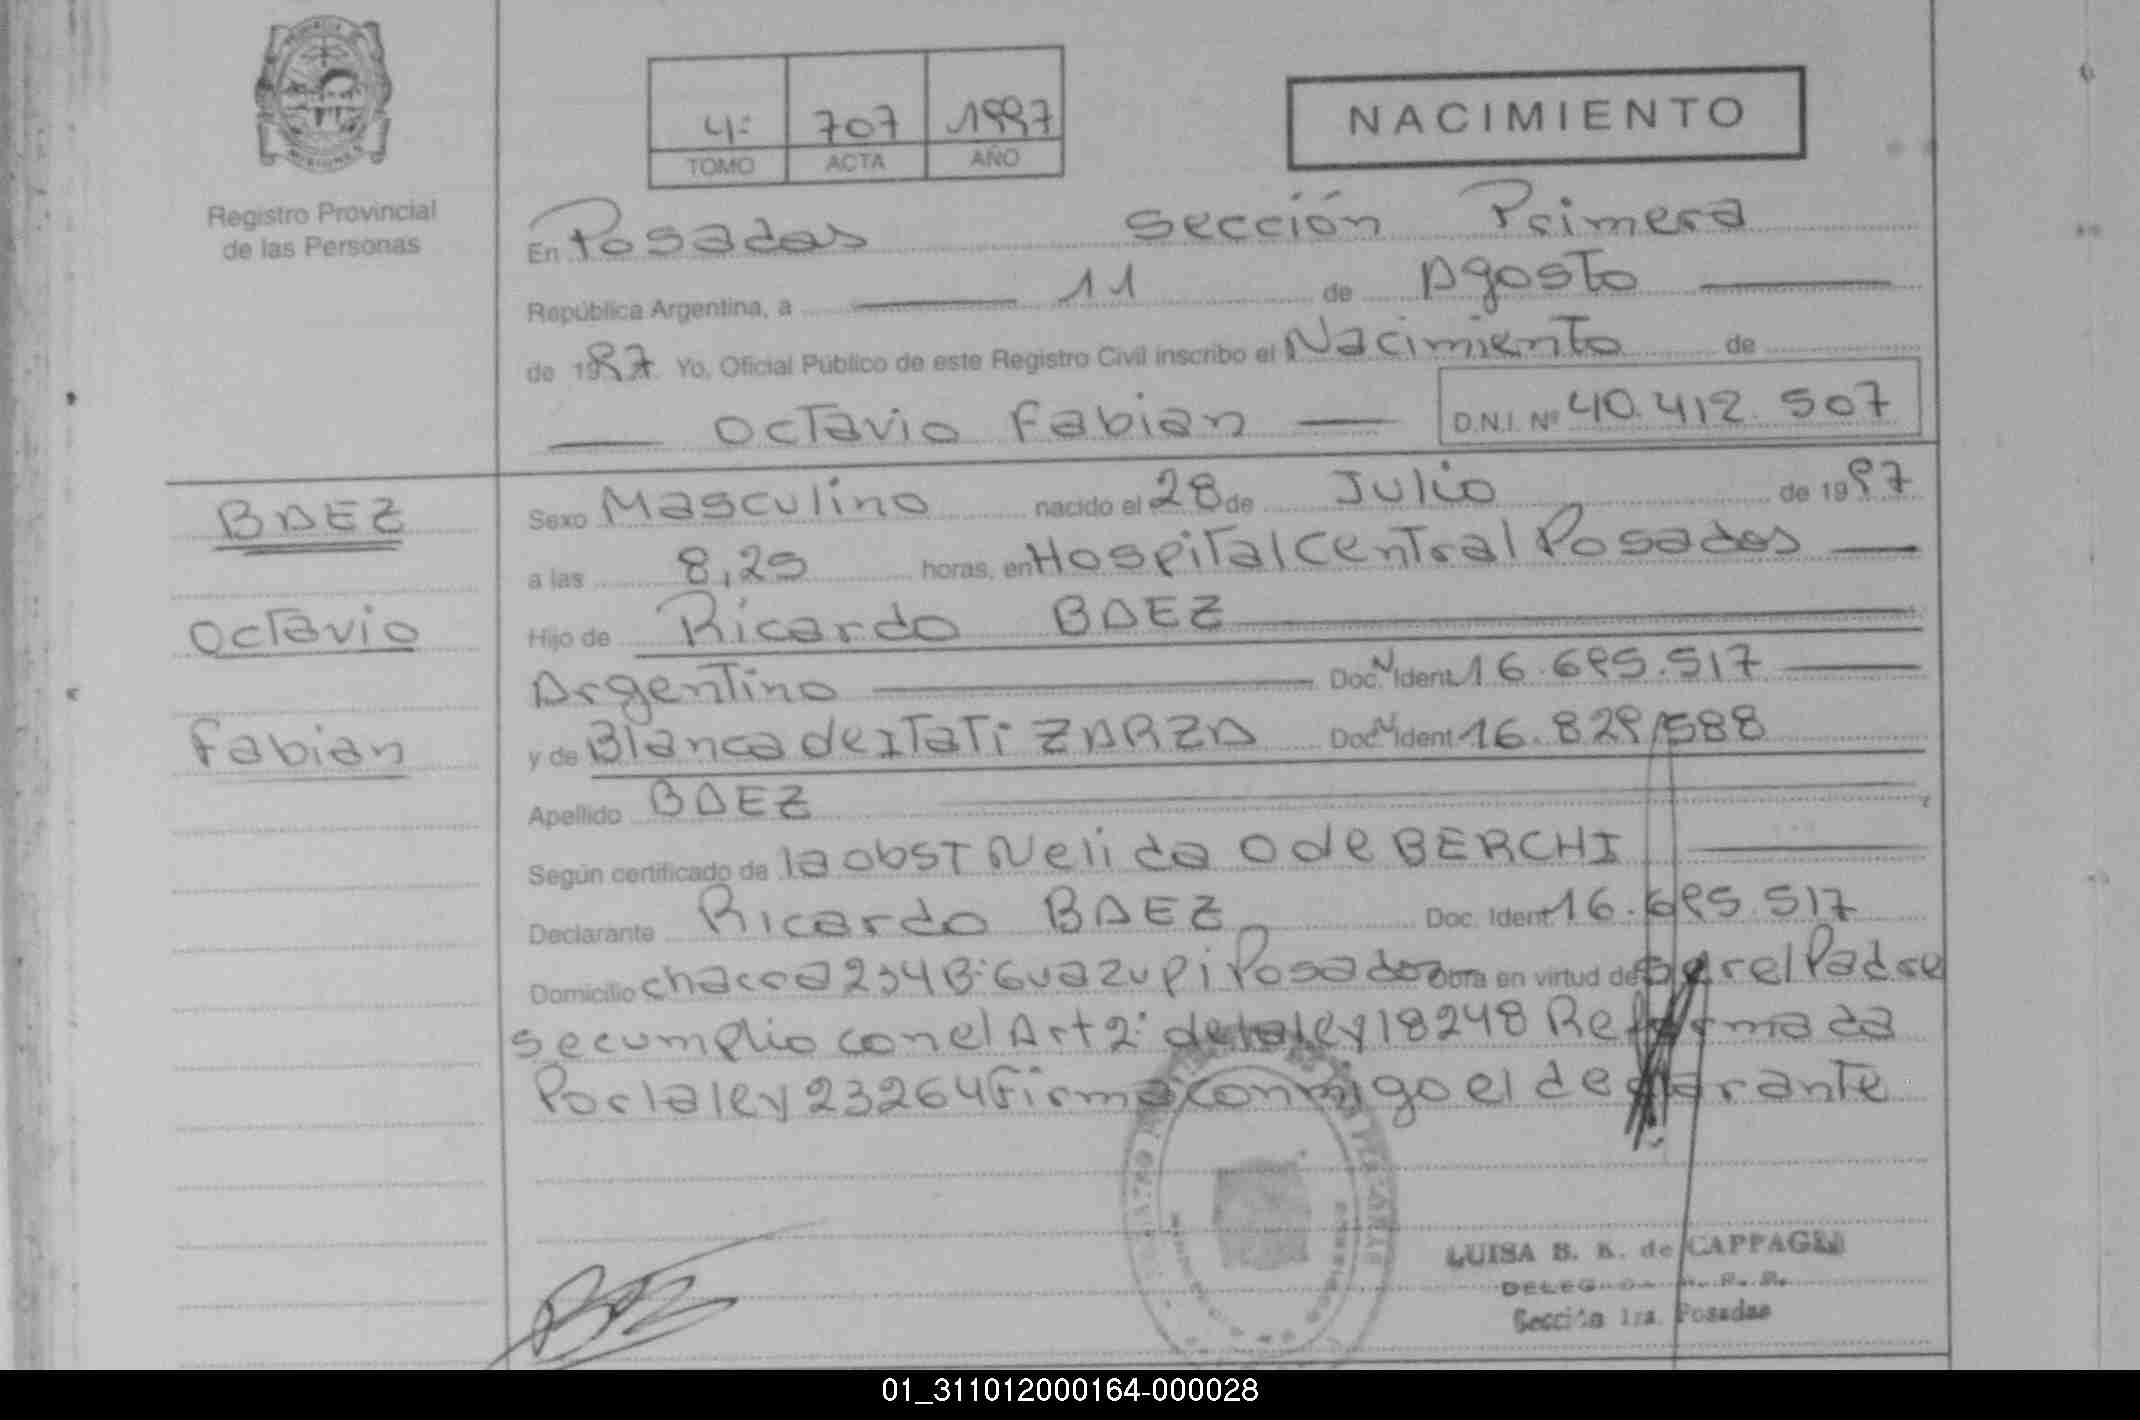 4º 707 1997
TOMO ACTA AÑO
NACIMIENTO
Registro Provincial
de las Personas
En Posadas Sección Primera
República Argentina, a 11 de Agosto
de 1997 Yo, Oficial Público de este Registro Civil inscribo el Nacimiento de
Octavio Fabian D.N.I. Nº 40.412.507
BAEZ
Octavio
Fabian
Sexo Masculino nacido el 28 de Julio de 1997
a las 8,25 horas, en Hospital Central Posadas
Hijo de Ricardo BAEZ
Argentino Doc. N Ident 16.695.517
y de Blanca de Itati ZARZA Doc. N Ident 16.829.588
Apellido BAEZ
Según certificado de la obst Nelida O de BERCHI
Declarante Ricardo BAEZ Doc. Ident. 16.695.517
Domicilio chacra 234 Bº Guazupi Posadas Obra en virtud de ser el Padre
se cumplio con el Art 2º de la ley 18248 Reformada
Por la ley 23264 Firma conmigo el declarante
BAEZ
LUISA B. K. de
Sección 1ra. Posadas
01_311012000164-000028